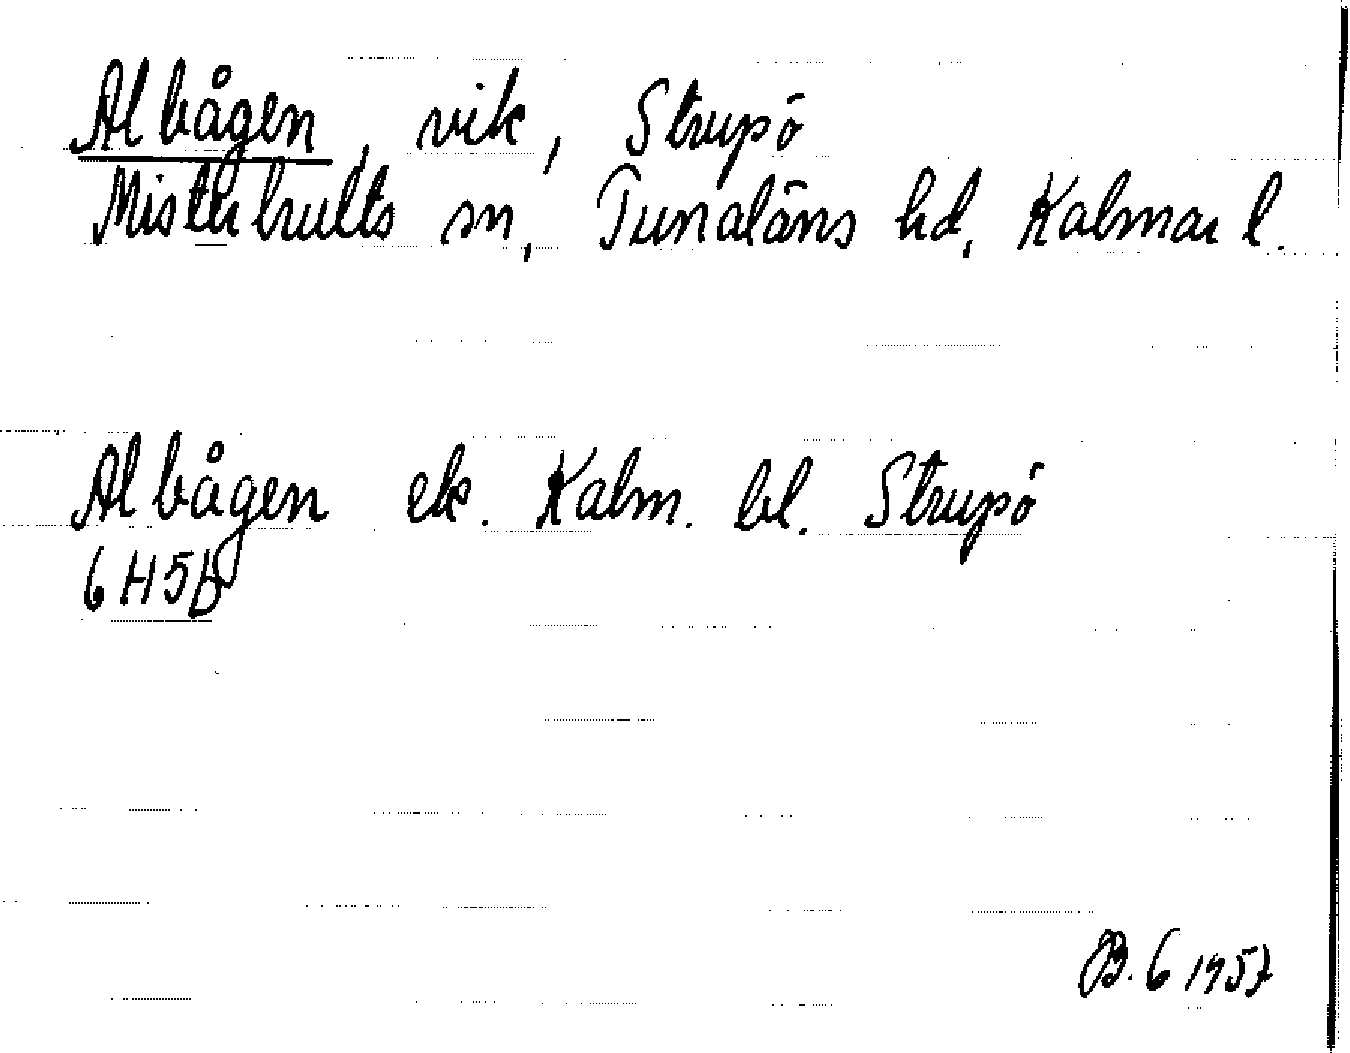 Albågen, vik, Strupö
Misterhults sn, Tunaläns hd, Kalmar l.
Albågen ek. Kalm. bl. Strupö
6H5b
B. G 1957